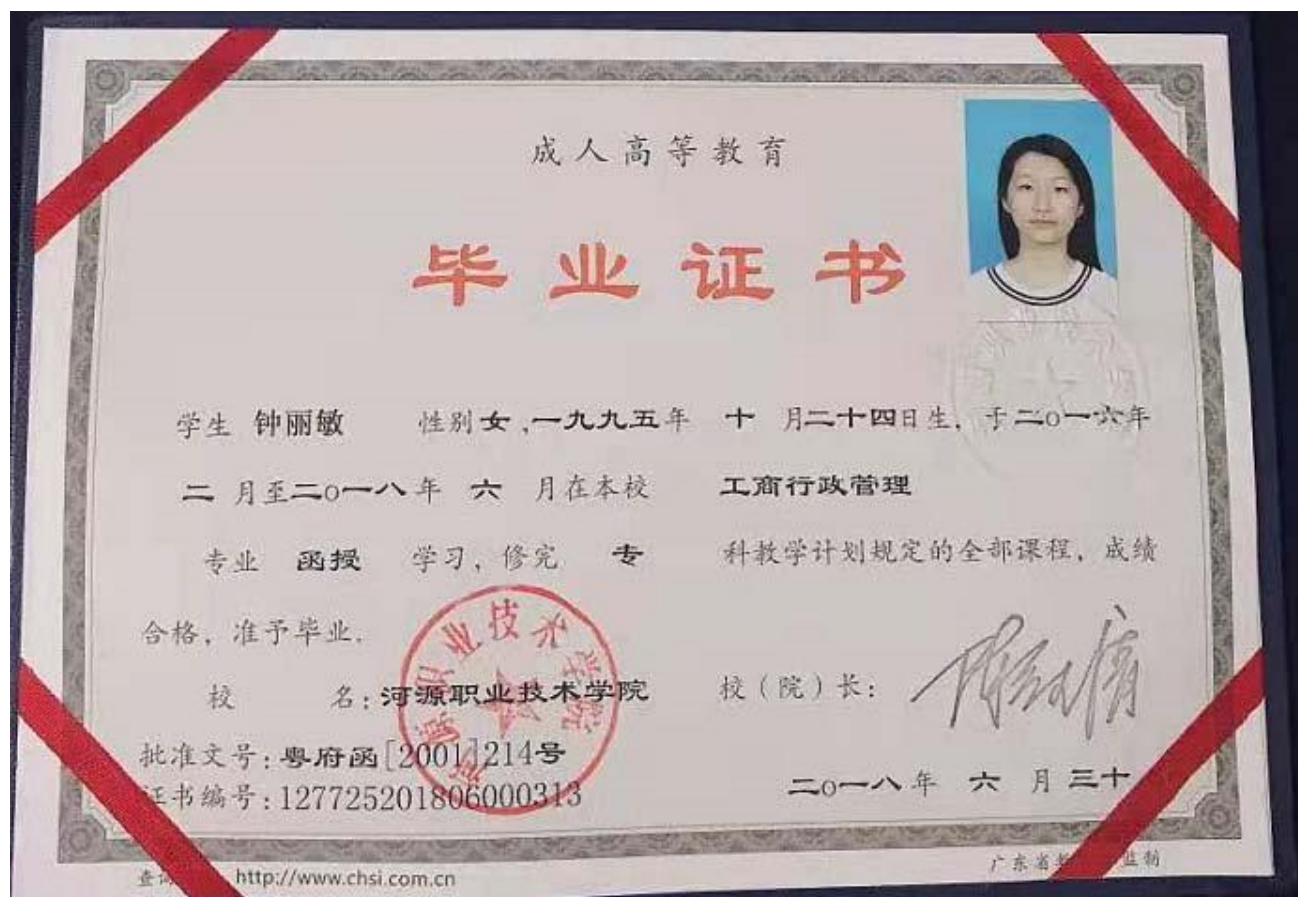 成人高等教育
毕业证书
学生 钟丽敏 性别女,一九九五年 十 月二十四日生,于二〇一六年
二 月至二〇一八年 六 月在本校 工商行政管理
专业 函授 学习,修完 专 科教学计划规定的全部课程,成绩
合格,准予毕业.
河源职业技术学院
校 名:河源职业技术学院 校(院)长:
批准文号:粤府函[2001]214号
证书编号:127725201806000313
二〇一八年 六 月三十
查询 http://www.chsi.com.cn
广东省 监制